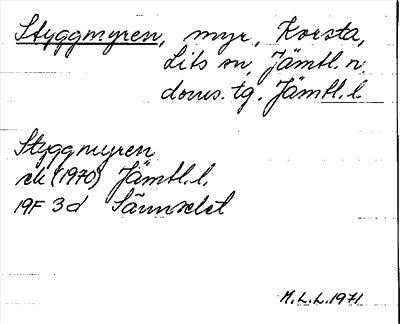 Styggmyren, myr, Korsta,
Lits sn, Jämtl. n.
doms. tg. Jämtl. l.
Styggmyren
ek (1970) Jämtl. l.
19F 3d Sännselet
M.L.L. 1971